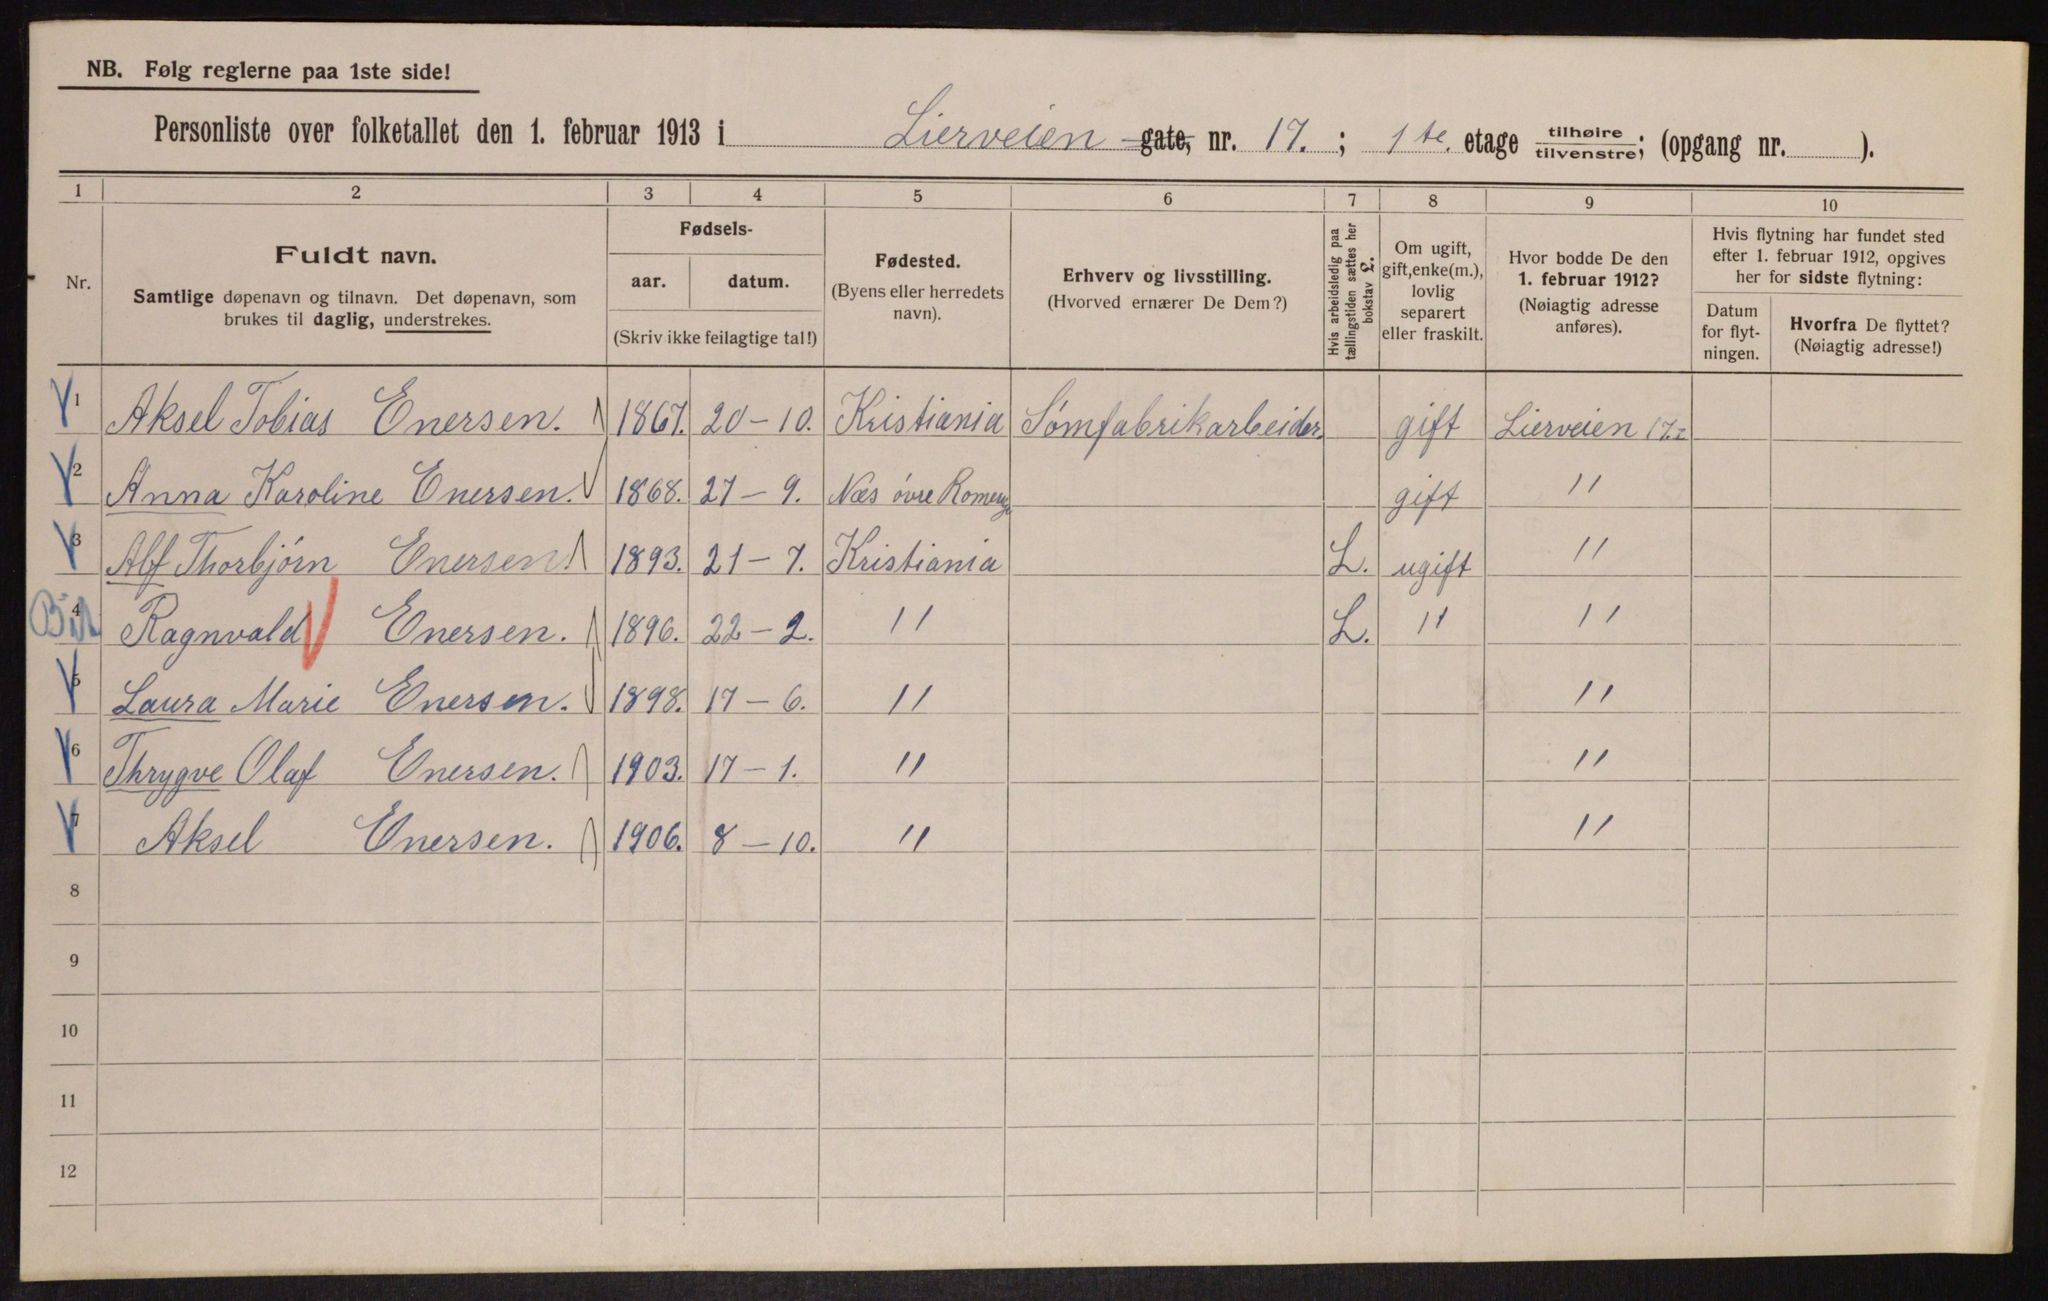 NB. Følg reglerne paa 1ste side!
Personliste over folketallet den 1. februar 1913 i Lierveien gate, nr. 17. ; 1 te. etage tilhøire/tilvenstre; (opgang nr. ).
1 2 3 4 5 6 7 8 9 10
Nr.
Fuldt navn.
Samtlige døpenavn og tilnavn. Det døpenavn, som
brukes til daglig, understrekes.
Fødsels-
aar. datum.
(Skriv ikke feilagtige tal!)
Fødested.
(Byens eller herredets
navn).
Erhverv og livsstilling.
(Hvorved ernærer De Dem?)
Hvis arbeidsledig paa
tællingstiden sættes her
bokstav £.
Om ugift,
gift, enke(m.),
lovlig
separert
eller fraskilt.
Hvor bodde De den
1. februar 1912?
(Nøiagtig adresse
anføres).
Hvis flytning har fundet sted
efter 1. februar 1912, opgives
her for sidste flytning:
Datum
for flyt-
ningen.
Hvorfra De flyttet?
(Nøiagtig adresse!)
1 Aksel Tobias Enersen. 1867. 20 – 10. Kristiania Sømfabrikarbeider. gift Lierveien 17.I
2 Anna Karoline Enersen. 1868. 27 – 9. Næs øvre Romerige gift "
3 Alf Thorbjørn Enersen. 1893. 21 – 7. Kristiania L. ugift "
4 Ragnvald Enersen. 1896. 22 – 2. " L. " "
5 Laura Marie Enersen. 1898. 17 – 6. " "
6 Thrygve Olaf Enersen. 1903. 17 – 1. " "
7 Aksel Enersen. 1906. 8 – 10. " "
8
9
10
11
12